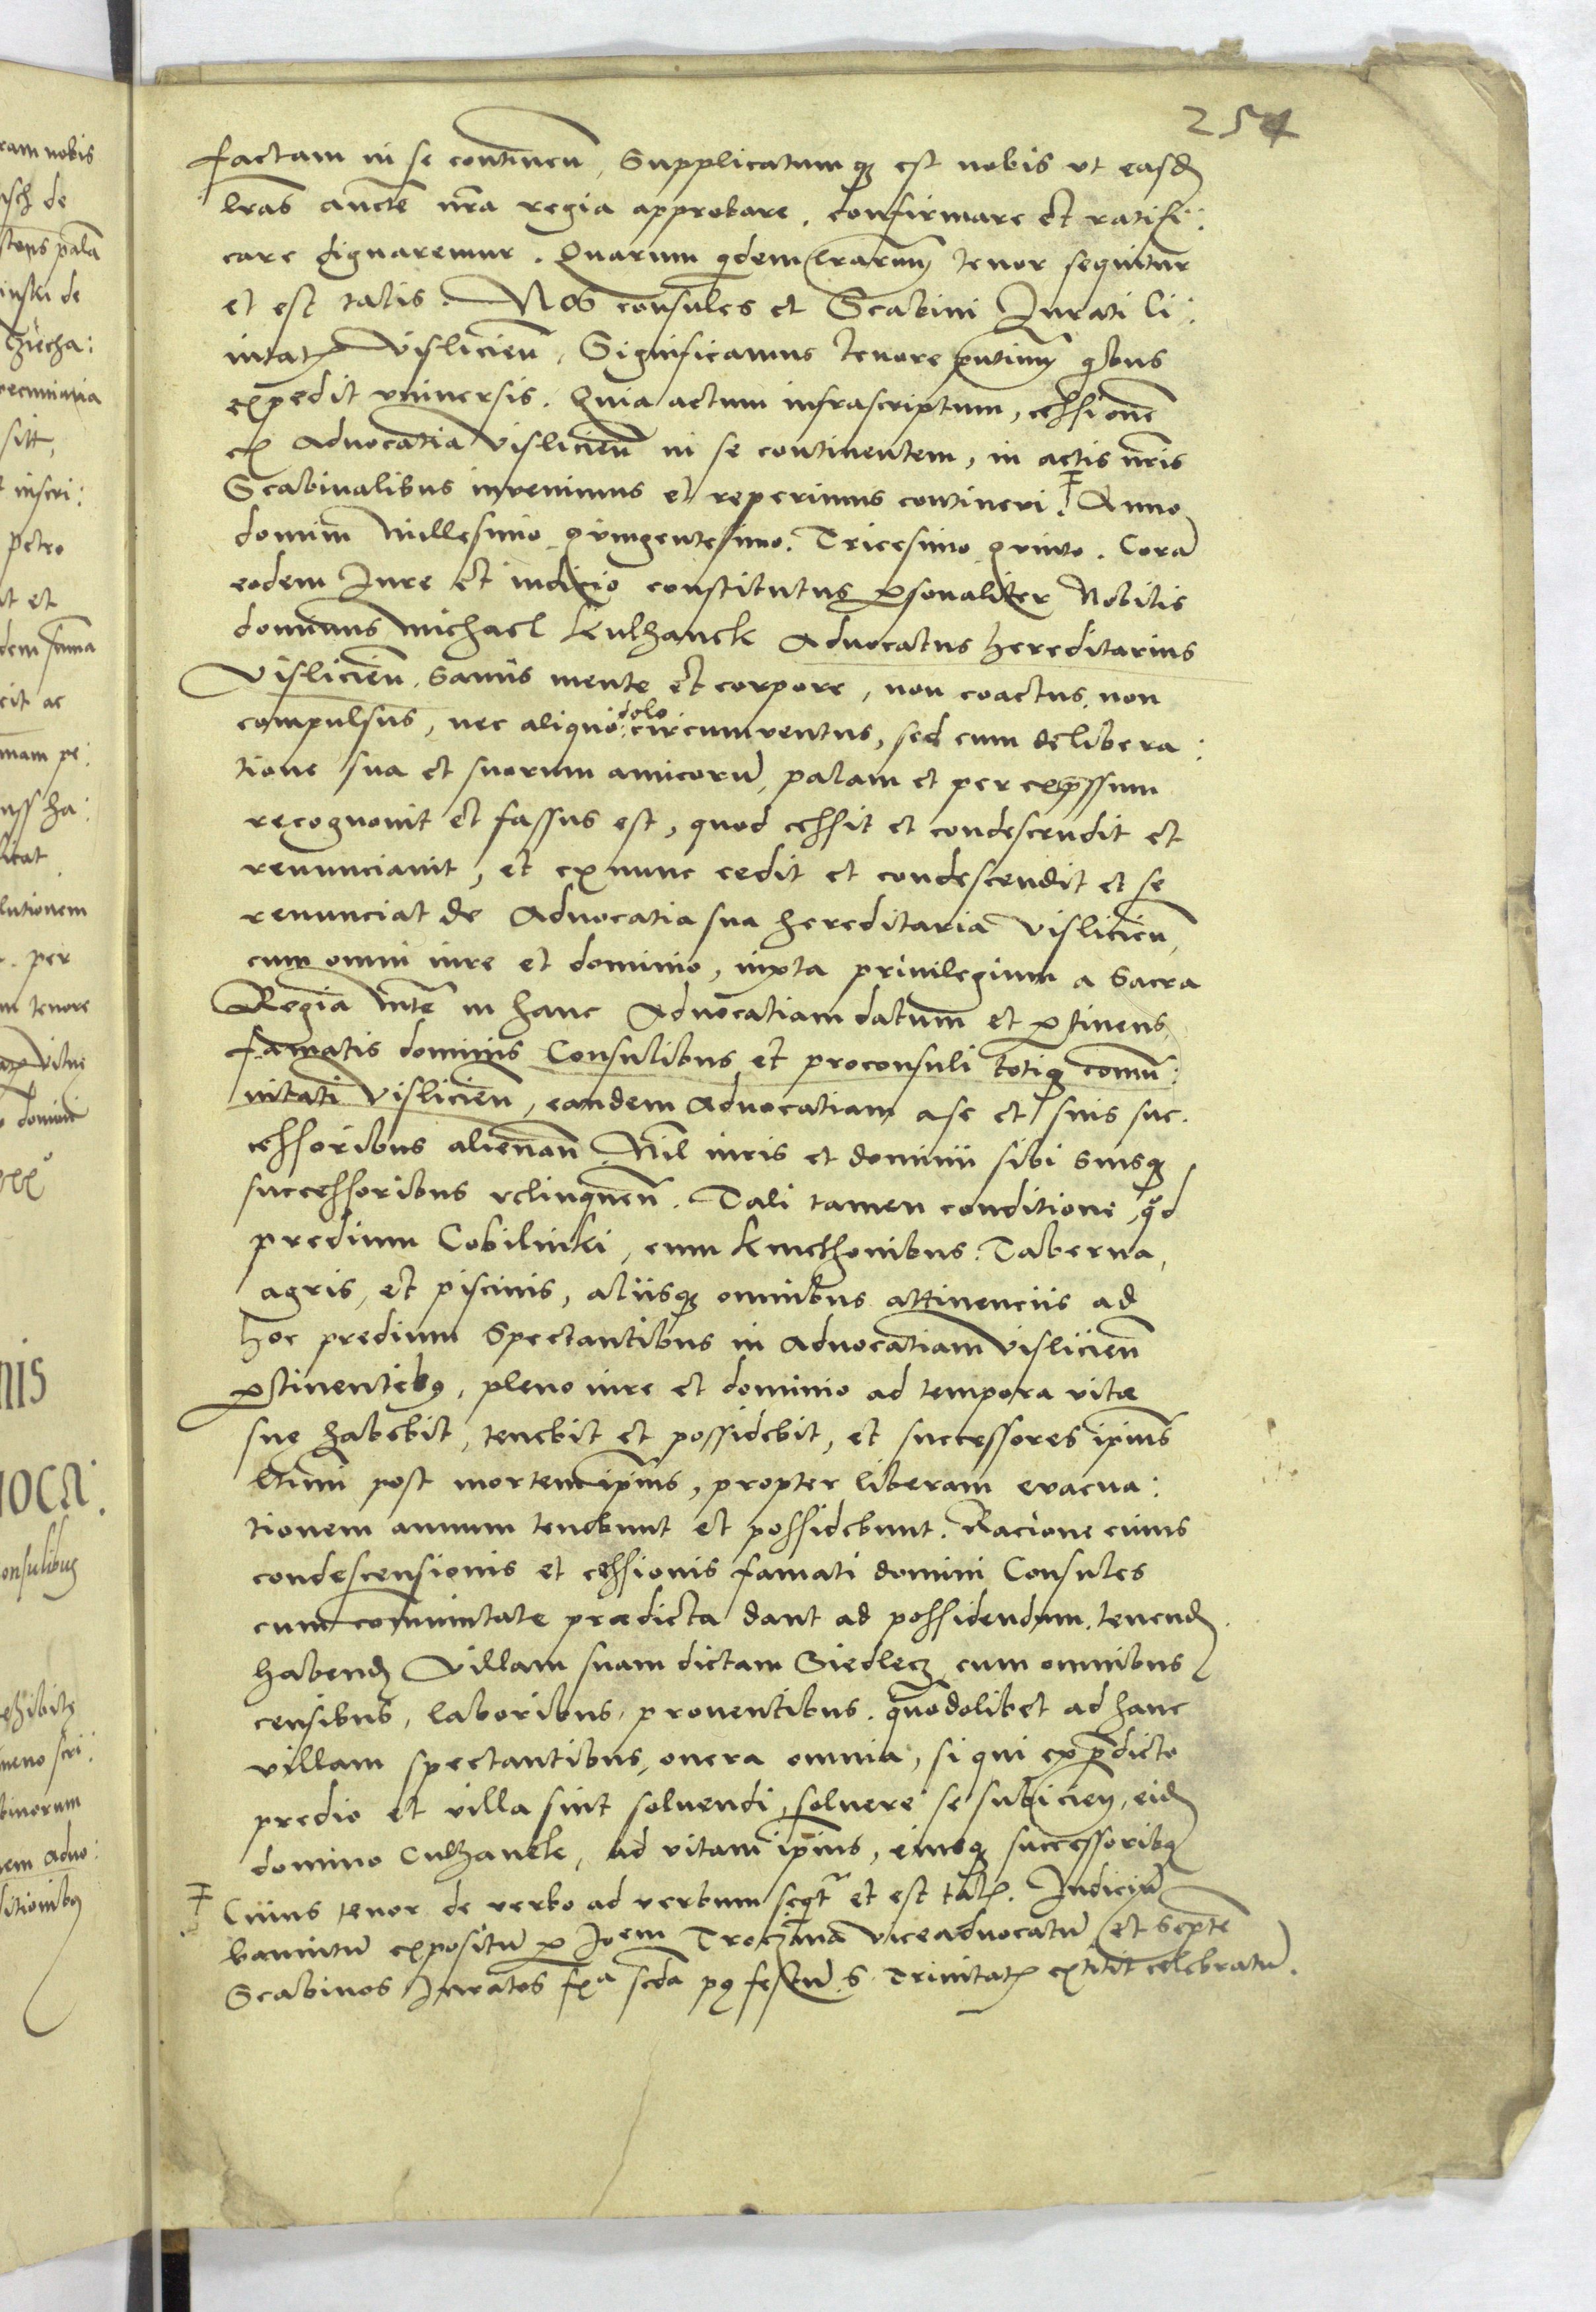 254
factam in se continen, Supplicatumq3 est nobis ut easd
lras aucte nra regia approbare, confirmare et ratifi:
care dignaremur. Quarum qdem lrarum tenor sequitur
et est talis. Nos consules et Scabini Jurati Ci:
uitat Visliciens, Significamus tenore pntium quibus
expedit vniuersis. Quia actum infrascriptum, cessione
ex Aduocatia Visliciens in se continentem, in actis nris
Scabinalibus inuenimus et reperimus contineri. ‡ Anno
domini Millesimo quingentesimo Tricesimo quinto. Cora
eodem Jure et iudicio constitutus psonaliter Nobilis
dominus Michael Kulhanek Aduocatus hereditarius
Vislicien. Sanus mente et corpore, non coactus, non
compulsus, nec aliquo: dolo circumuentus, sed cum delibera:
tione sua et suorum amicoru, palam et per expssum
recognouit et fassus est, quod cessit et condescendit et
renunciauit, et ex nunc cedit et condescendit et se
renunciat de Aduocatia sua hereditaria Vislicien,
cum omni iure et dominio, iuxta priuilegium a Sacra
Regia Mte in hanc Aduocatiam datum et ptinens,
famatis dominis Consulibus et proconsuli totiq3 comu:
nitati Vislicien, eandem Aduocatiam a se et suis suc:
cessoribus alienan. Nil iuris et dominii sibi suisq3
successoribus relinquen. Tali tamen conditione, qd
predium Cobilinki, cum kmethonibus, Taberna,
agris, et piscinis, aliisq3 omnibus attinenciis ad
hoc predium Spectantibus in Aduocatiam Vislicien
ptinentib9, pleno iure et dominio ad tempora vitae
sue habebit, tenebit et possidebit, et successores ipius
ltimi post mortem ipius, propter liberam euacua:
tionem annum tenebunt et possidebunt. Racione cuius
condescensionis et cessionis famati domini Consules
cum comunitate praedicta dant ad possidendum, tenend
habend Villam suam dictam Siedlecz cum omnibus
censibus, laboribus, prouentibus, quomodolibet ad hanc
villam spectantibus, onera omnia, si qui ex pdicto
predio et villa sint soluendi, soluere se subiicien, eid
domino Culhanek, ad vitam ipius, eiusq3 successorib9
‡ Cuius tenor de verbo ad verbum seqt et est talis. Judiciu
bannitu expositu p Joem Troczma viceaduocatu et septe
Scabinos Juratos fxa scda p9 festu S. Trinitat extitit celebratu.